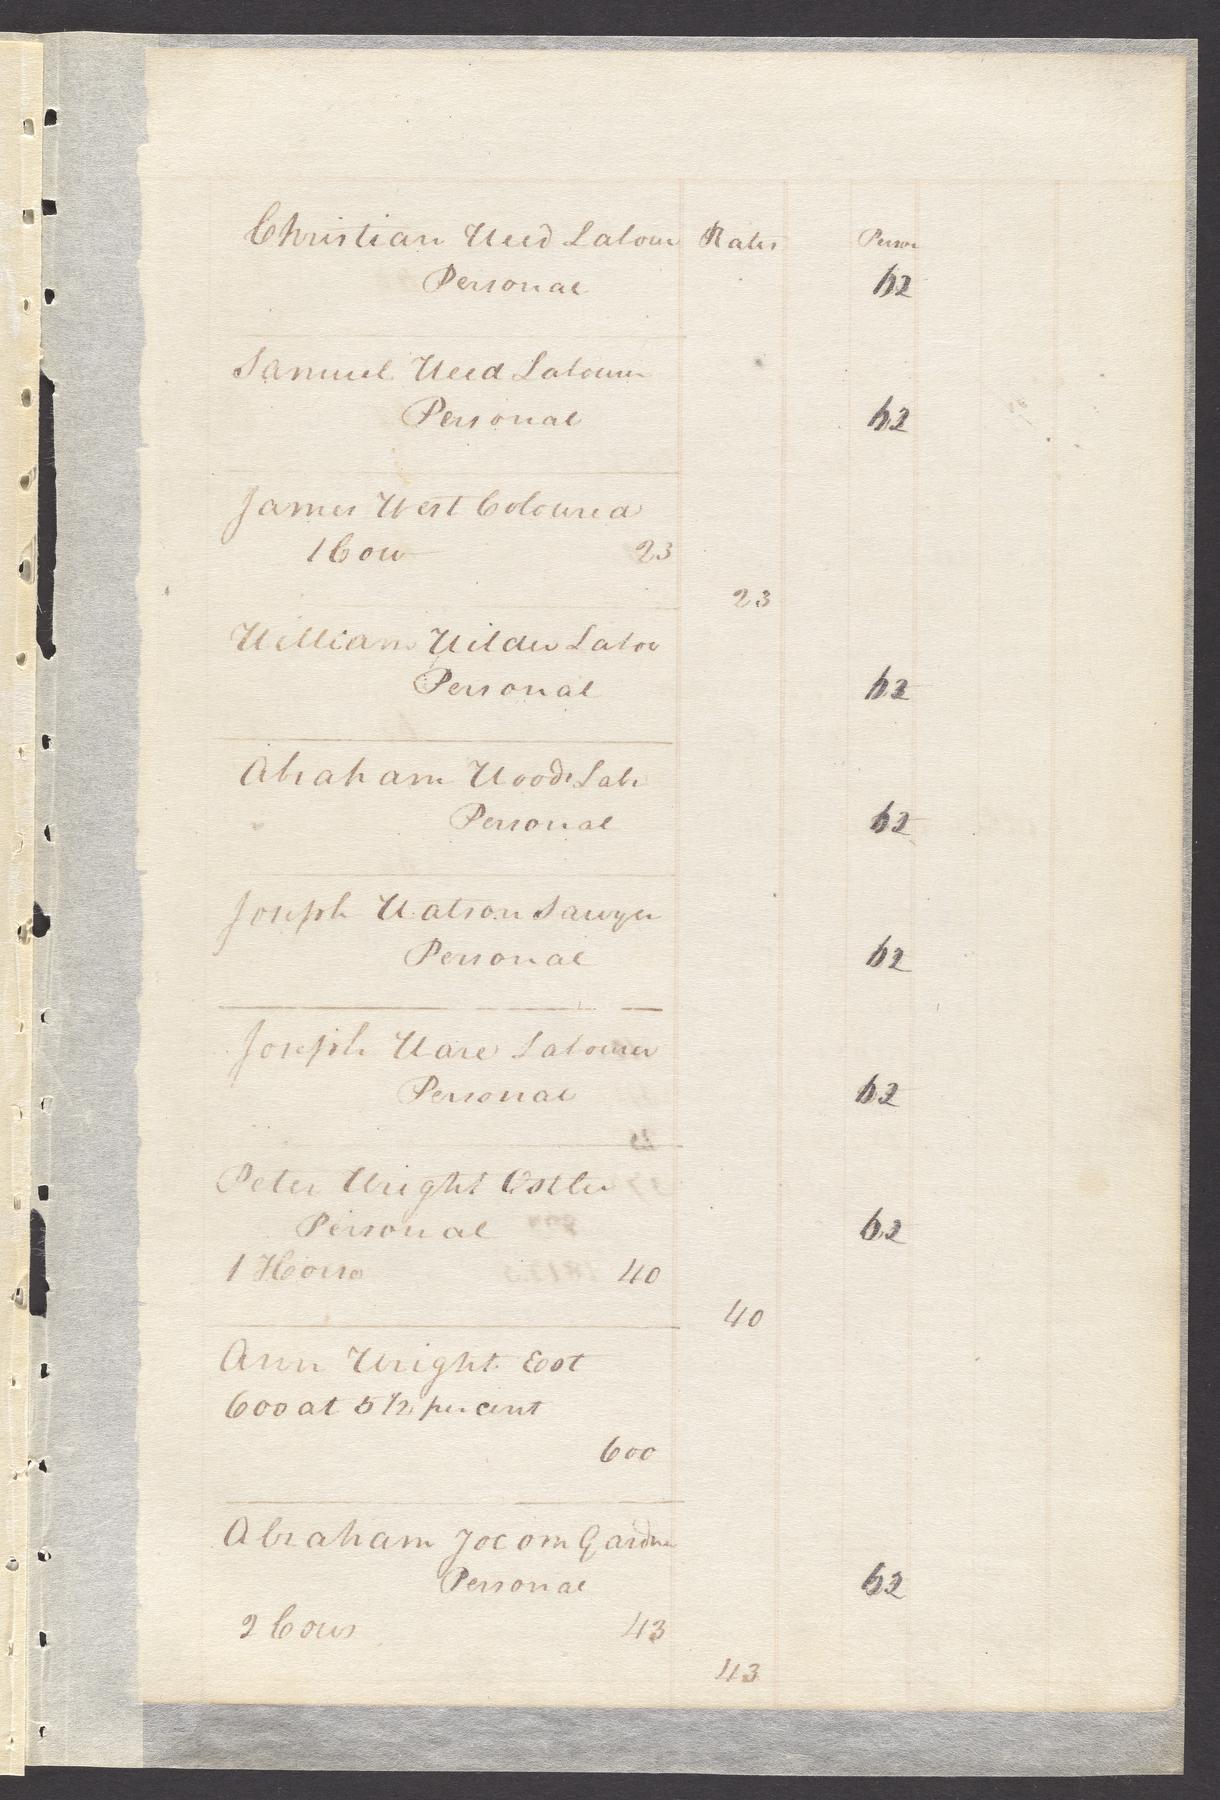 Christian Weed Labour Rates Person
Personal 62
Samuel Weed Labourer
Personal 62
James West Coloured
1 Cow 23
23
William Wilder Labor
Personal 62
Abraham Woods Labr
Personal 62
Joseph Watson Sawyer
Personal 62
Joseph Ware Labourer
Personal 62
Peter Wright Ostler
Personal 62
1 Horse 40
40
Ann Wright
600 at 5 1/2 per cent
600
Abraham Jocom Gardner
Personal 62
2 Cows 43
43